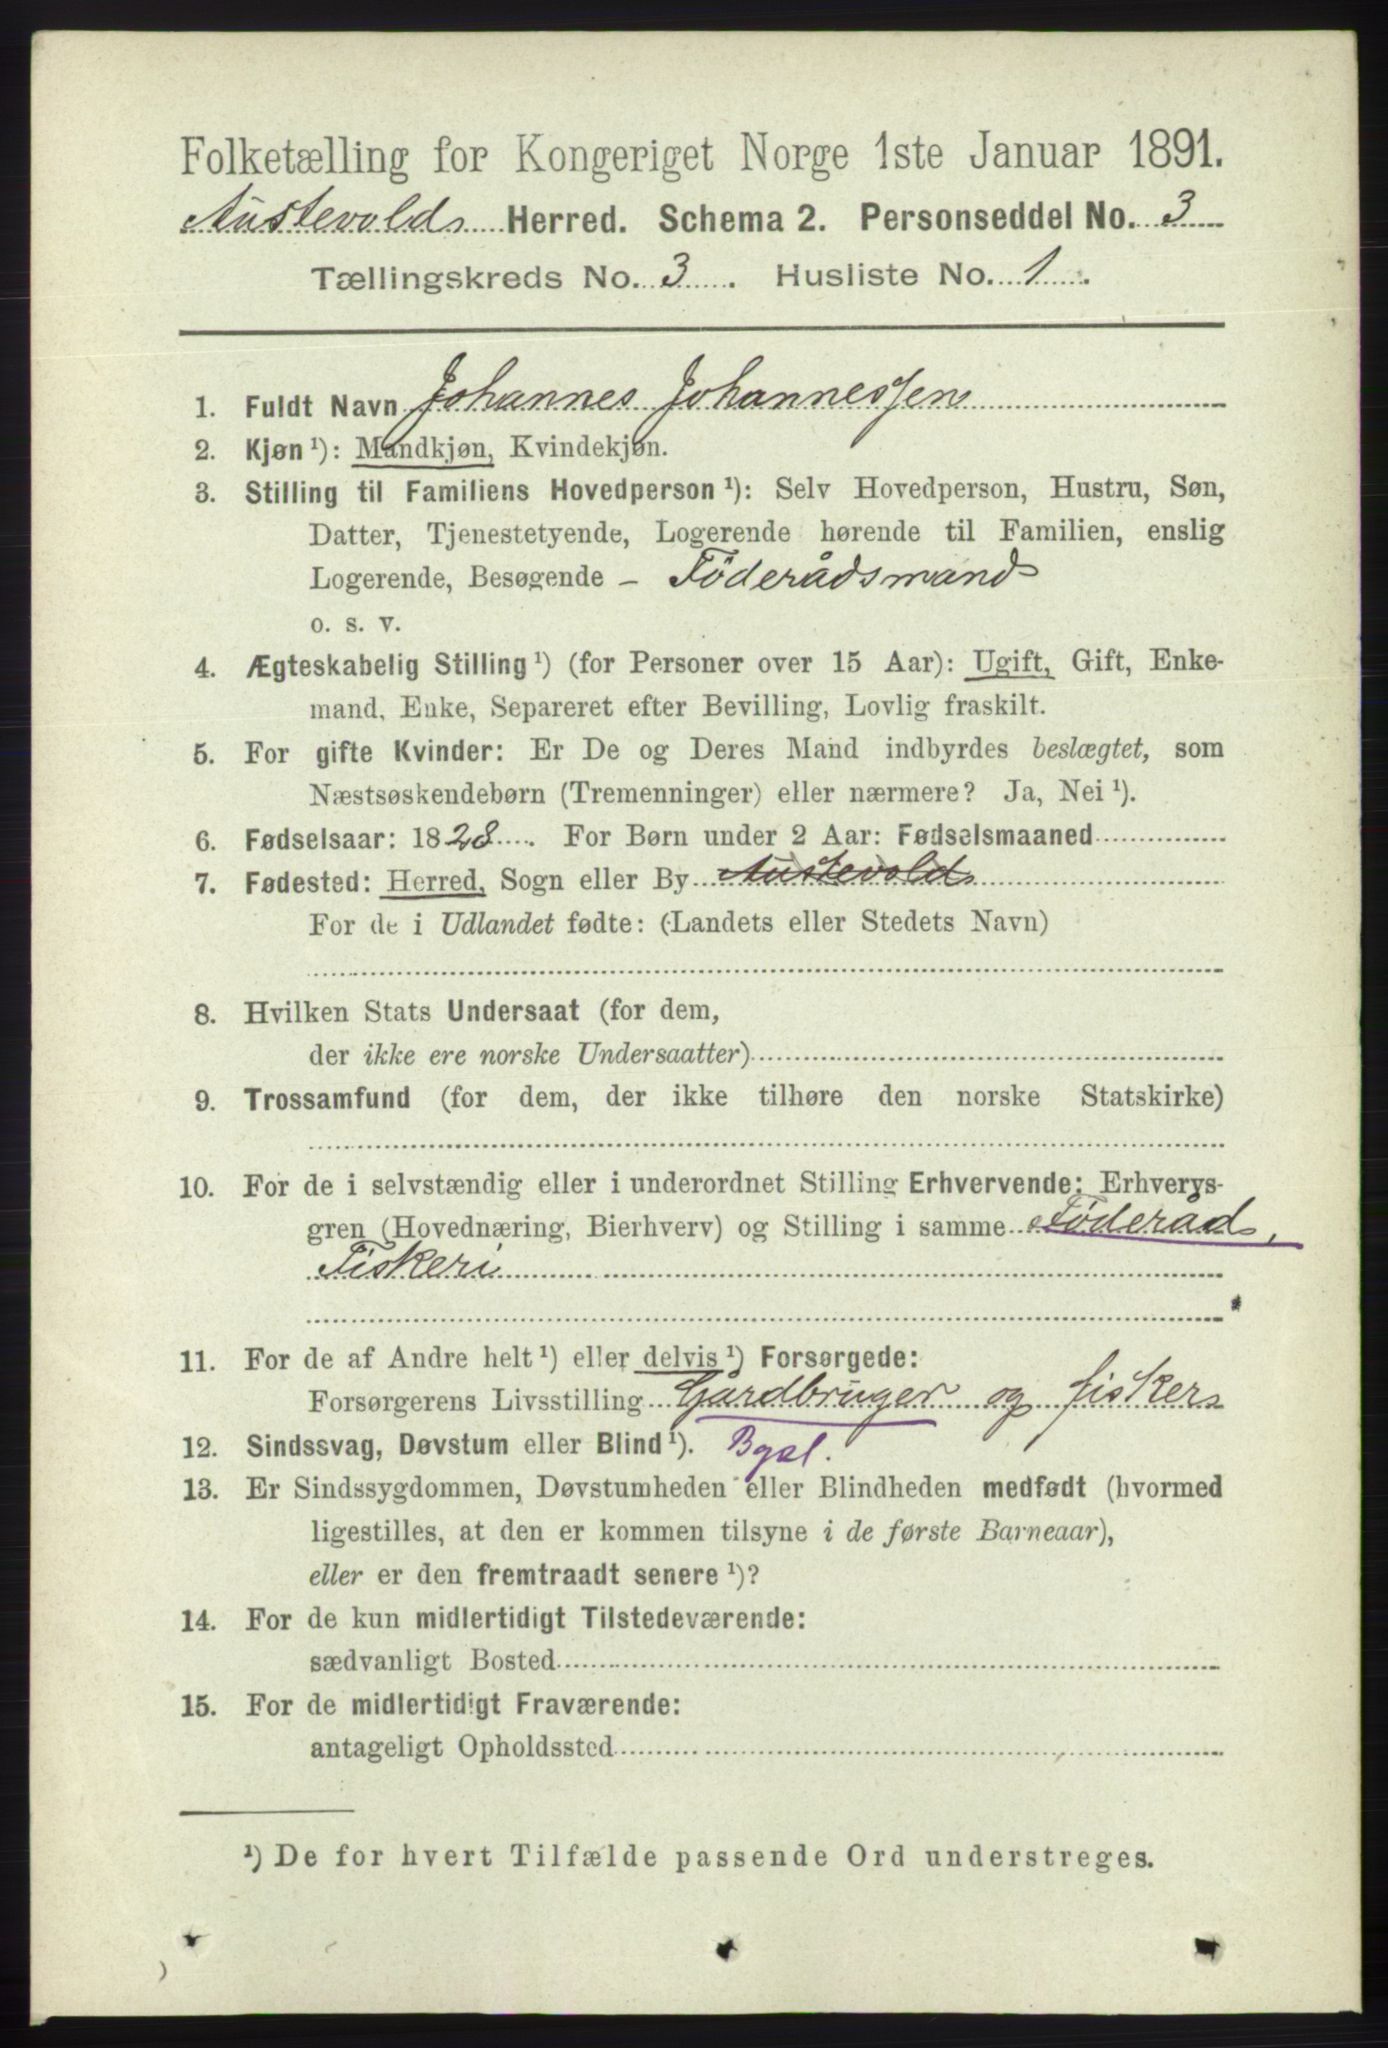 Folketælling for Kongeriget Norge 1ste Januar 1891.
Austevold Herred. Schema 2. Personseddel No. 3
Tællingskreds No. 3. Husliste No. 1.
1. Fuldt Navn Johannes Johannessen
2. Kjøn ¹): Mandkjøn, Kvindekjøn.
3. Stilling til Familiens Hovedperson ¹): Selv Hovedperson, Hustru, Søn,
Datter, Tjenestetyende, Logerende hørende til Familien, enslig
Logerende, Besøgende – Föderådsmand
o. s. v.
4. Ægteskabelig Stilling ¹) (for Personer over 15 Aar): Ugift, Gift, Enke-
mand, Enke, Separeret efter Bevilling, Lovlig fraskilt.
5. For gifte Kvinder: Er De og Deres Mand indbyrdes beslægtet, som
Næstsøskendebørn (Tremenninger) eller nærmere? Ja, Nei ¹).
6. Fødselsaar: 1828. For Børn under 2 Aar: Fødselsmaaned
7. Fødested: Herred, Sogn eller By Austevold
For de i Udlandet fødte: (Landets eller Stedets Navn)
8. Hvilken Stats Undersaat (for dem,
der ikke ere norske Undersaatter)
9. Trossamfund (for dem, der ikke tilhøre den norske Statskirke)
10. For de i selvstændig eller i underordnet Stilling Erhvervende: Erhvervs-
gren (Hovednæring, Bierhverv) og Stilling i samme Föderåd,
Fiskeri
11. For de af Andre helt ¹) eller delvis ¹) Forsørgede:
Forsørgerens Livsstilling Gårdbruger og fisker
12. Sindssvag, Døvstum eller Blind ¹). Bgsl.
13. Er Sindssygdommen, Døvstumheden eller Blindheden medfødt (hvormed
ligestilles, at den er kommen tilsyne i de første Barneaar),
eller er den fremtraadt senere ¹)?
14. For de kun midlertidigt Tilstedeværende:
sædvanligt Bosted
15. For de midlertidigt Fraværende:
antageligt Opholdssted
¹) De for hvert Tilfælde passende Ord understreges.